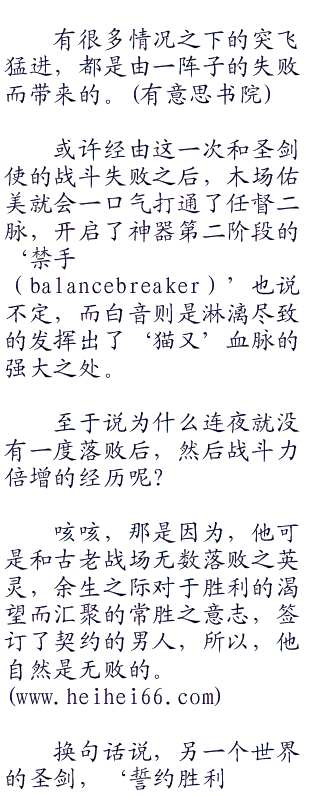 有很多情况之下的突飞
猛进，都是由一阵子的失败
而带来的。(有意思书院)
或许经由这一次和圣剑
使的战斗失败之后，木场佑
美就会一口气打通了任督二
脉，开启了神器第二阶段的
‘禁手
（balancebreaker）’也说
不定，而白音则是淋漓尽致
的发挥出了‘猫又’血脉的
强大之处。
至于说为什么连夜就没
有一度落败后，然后战斗力
倍增的经历呢？
咳咳，那是因为，他可
是和古老战场无数落败之英
灵，余生之际对于胜利的渴
望而汇聚的常胜之意志，签
订了契约的男人，所以，他
自然是无败的。
(www.heihei66.com)
换句话说，另一个世界
的圣剑，‘誓约胜利